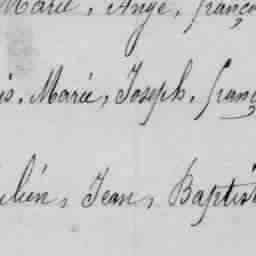 Marie, Ange, franço
is, Marie, Joseph, franç
Julien, Jean, Baptist